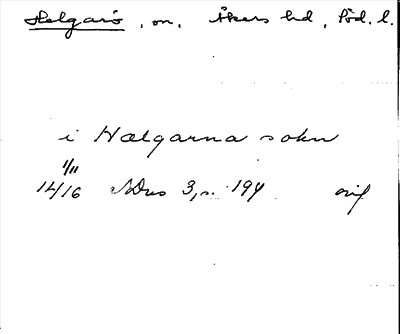 Helgarö, sn. Åkers hd, Söd. l.
i Hælgarna sokn
1/11
1416 SDns 3, s. 194 orig